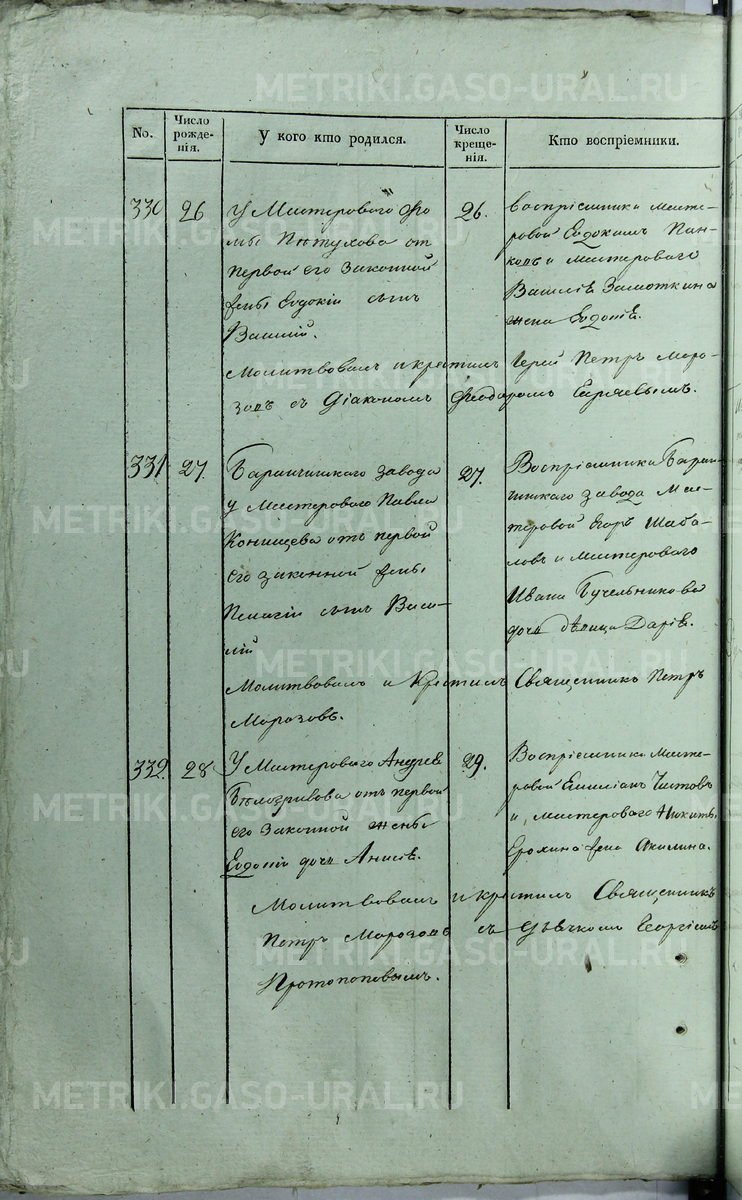 No.
Число рожде-
нія.
У кого кто родился.
Число креще-
нія.
Кто воспріемники.
330
26
У Мастероваго Фо-
мы Пѣтухова отъ
первой его законной
жены Евдокіи сынъ
Василій.
26.
Воспріемники масте-
ровой Евдокимъ Пан-
ковъ и мастероваго
Василія Замоткина
жена Евдокія.
Молитвовалъ и крестилъ Іерей Петръ Моро-
зовъ съ Діакономъ Феодоромъ
331
27.
Баранчинскаго завода
у Мастероваго Павла
Конищева отъ первой
его законной жены
Пелагіи сынъ Васи-
лій
27.
Воспріемники Баран-
чинскаго завода Мас-
теровой Егоръ Шаба-
ловъ и мастероваго
Ивана Бучельникова
дочь дѣвица Дарія.
Молитвовалъ и Крестилъ Священникъ Петръ
Морозовъ.
332.
28
У Мастероваго Андрея
отъ первой
его законной жены
Евдокіи дочь Анисія.
29.
Воспріемники Масте-
ровой Емиліанъ Чистовъ
и мастероваго Никиты
Ерохина жена Акилина.
Молитвовалъ и крестилъ Священникъ
Петръ Морозовъ съ Дьячкомъ Георгіемъ
Протопоповымъ.
METRIKI.GASO-URAL.RU